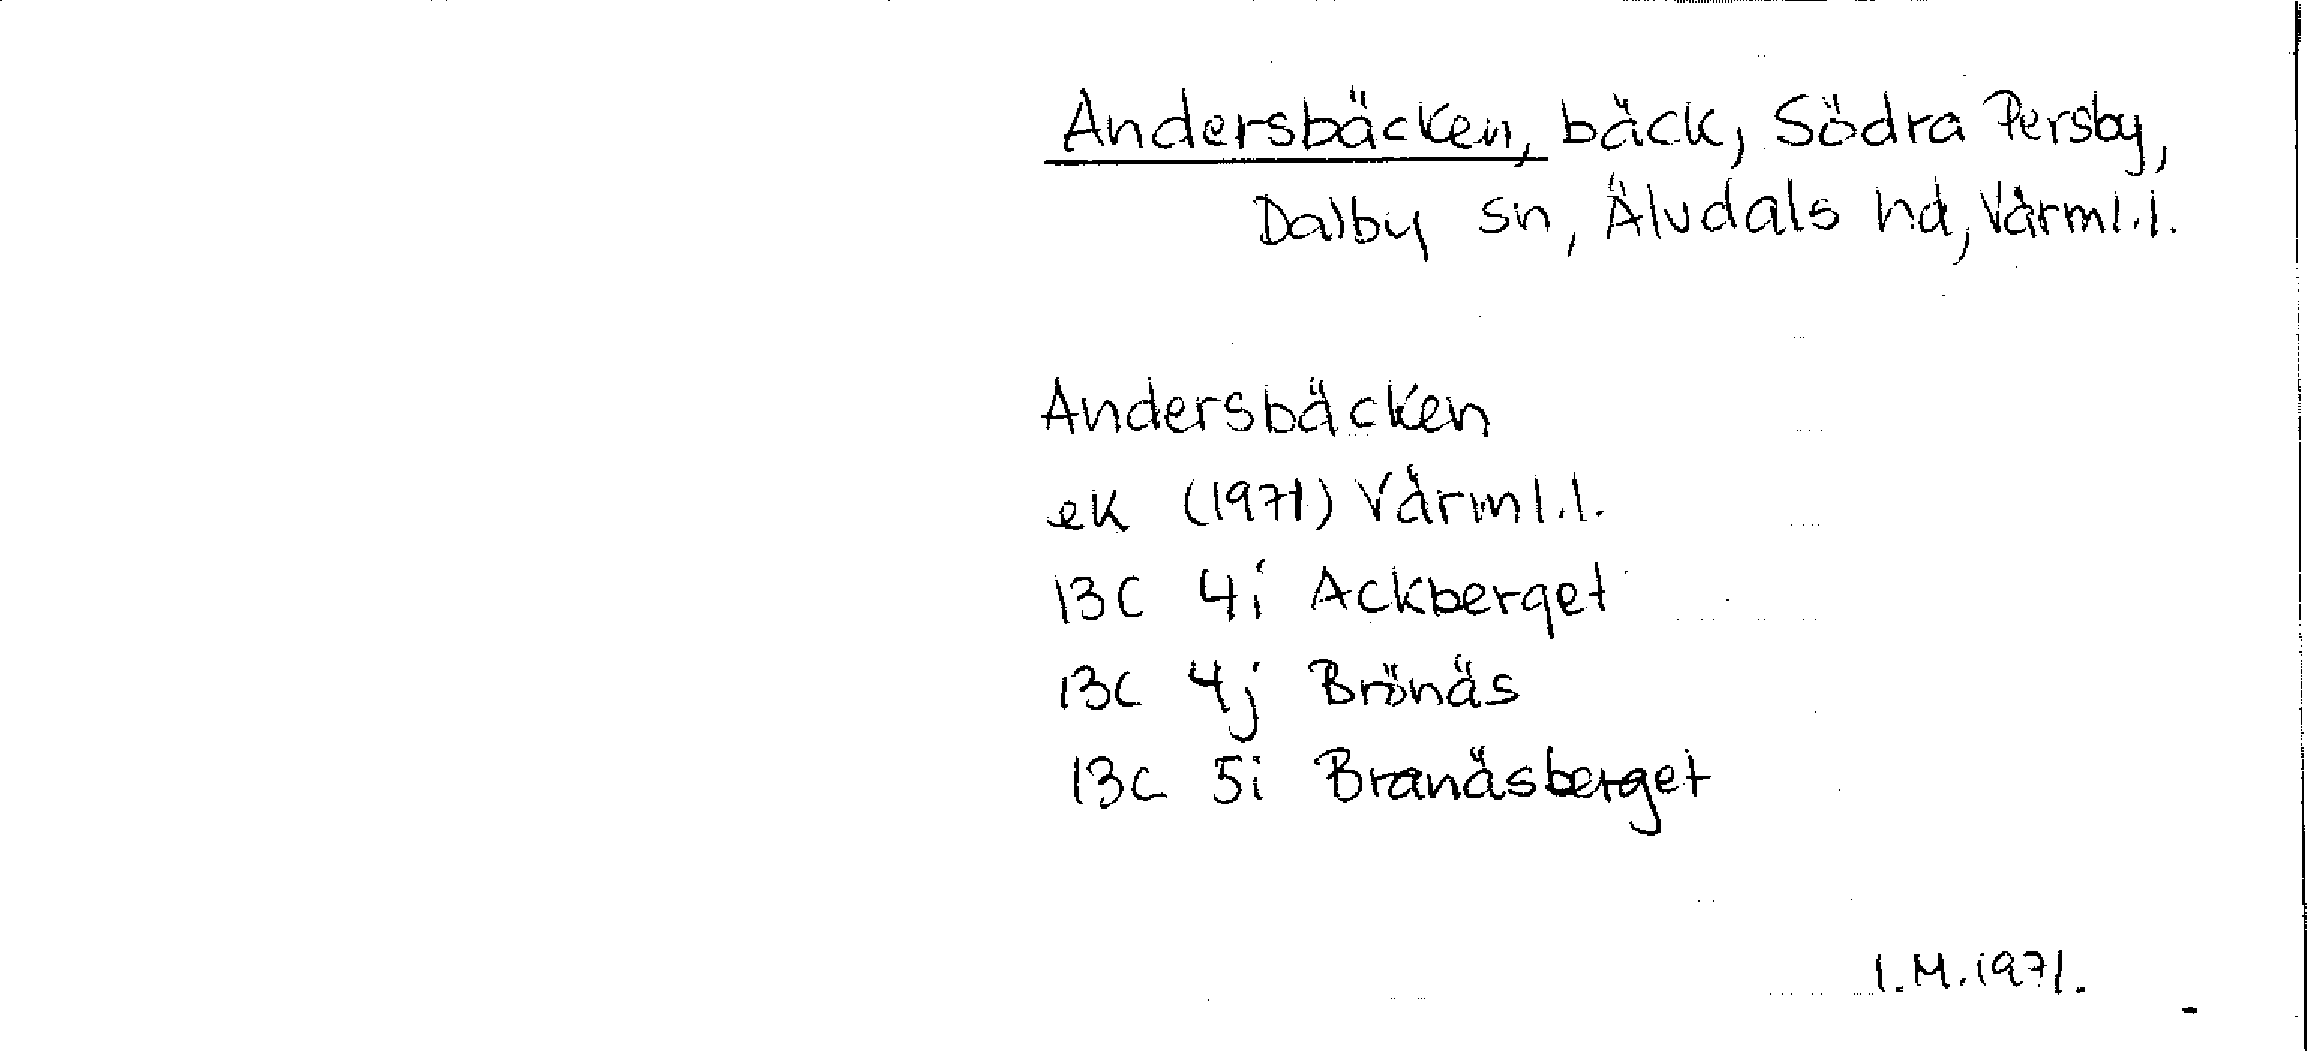 Andersbäcken, bäck, Södra Persby,
Dalby sn, Älvdals hd, Värml.l.
Andersbäcken
ek (1971) Värml.l.
13C 4i Ackberget
13C 4j Brönäs
13C 5i Branäsberget
I.M.1971.